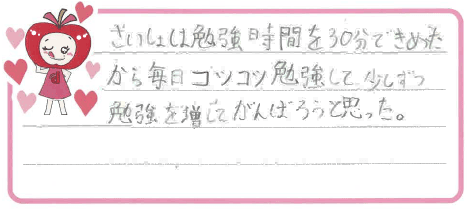 さいしょは勉強時間を30分できめた
から毎日コツコツ勉強して少しずつ
勉強を増してがんばろうと思った。